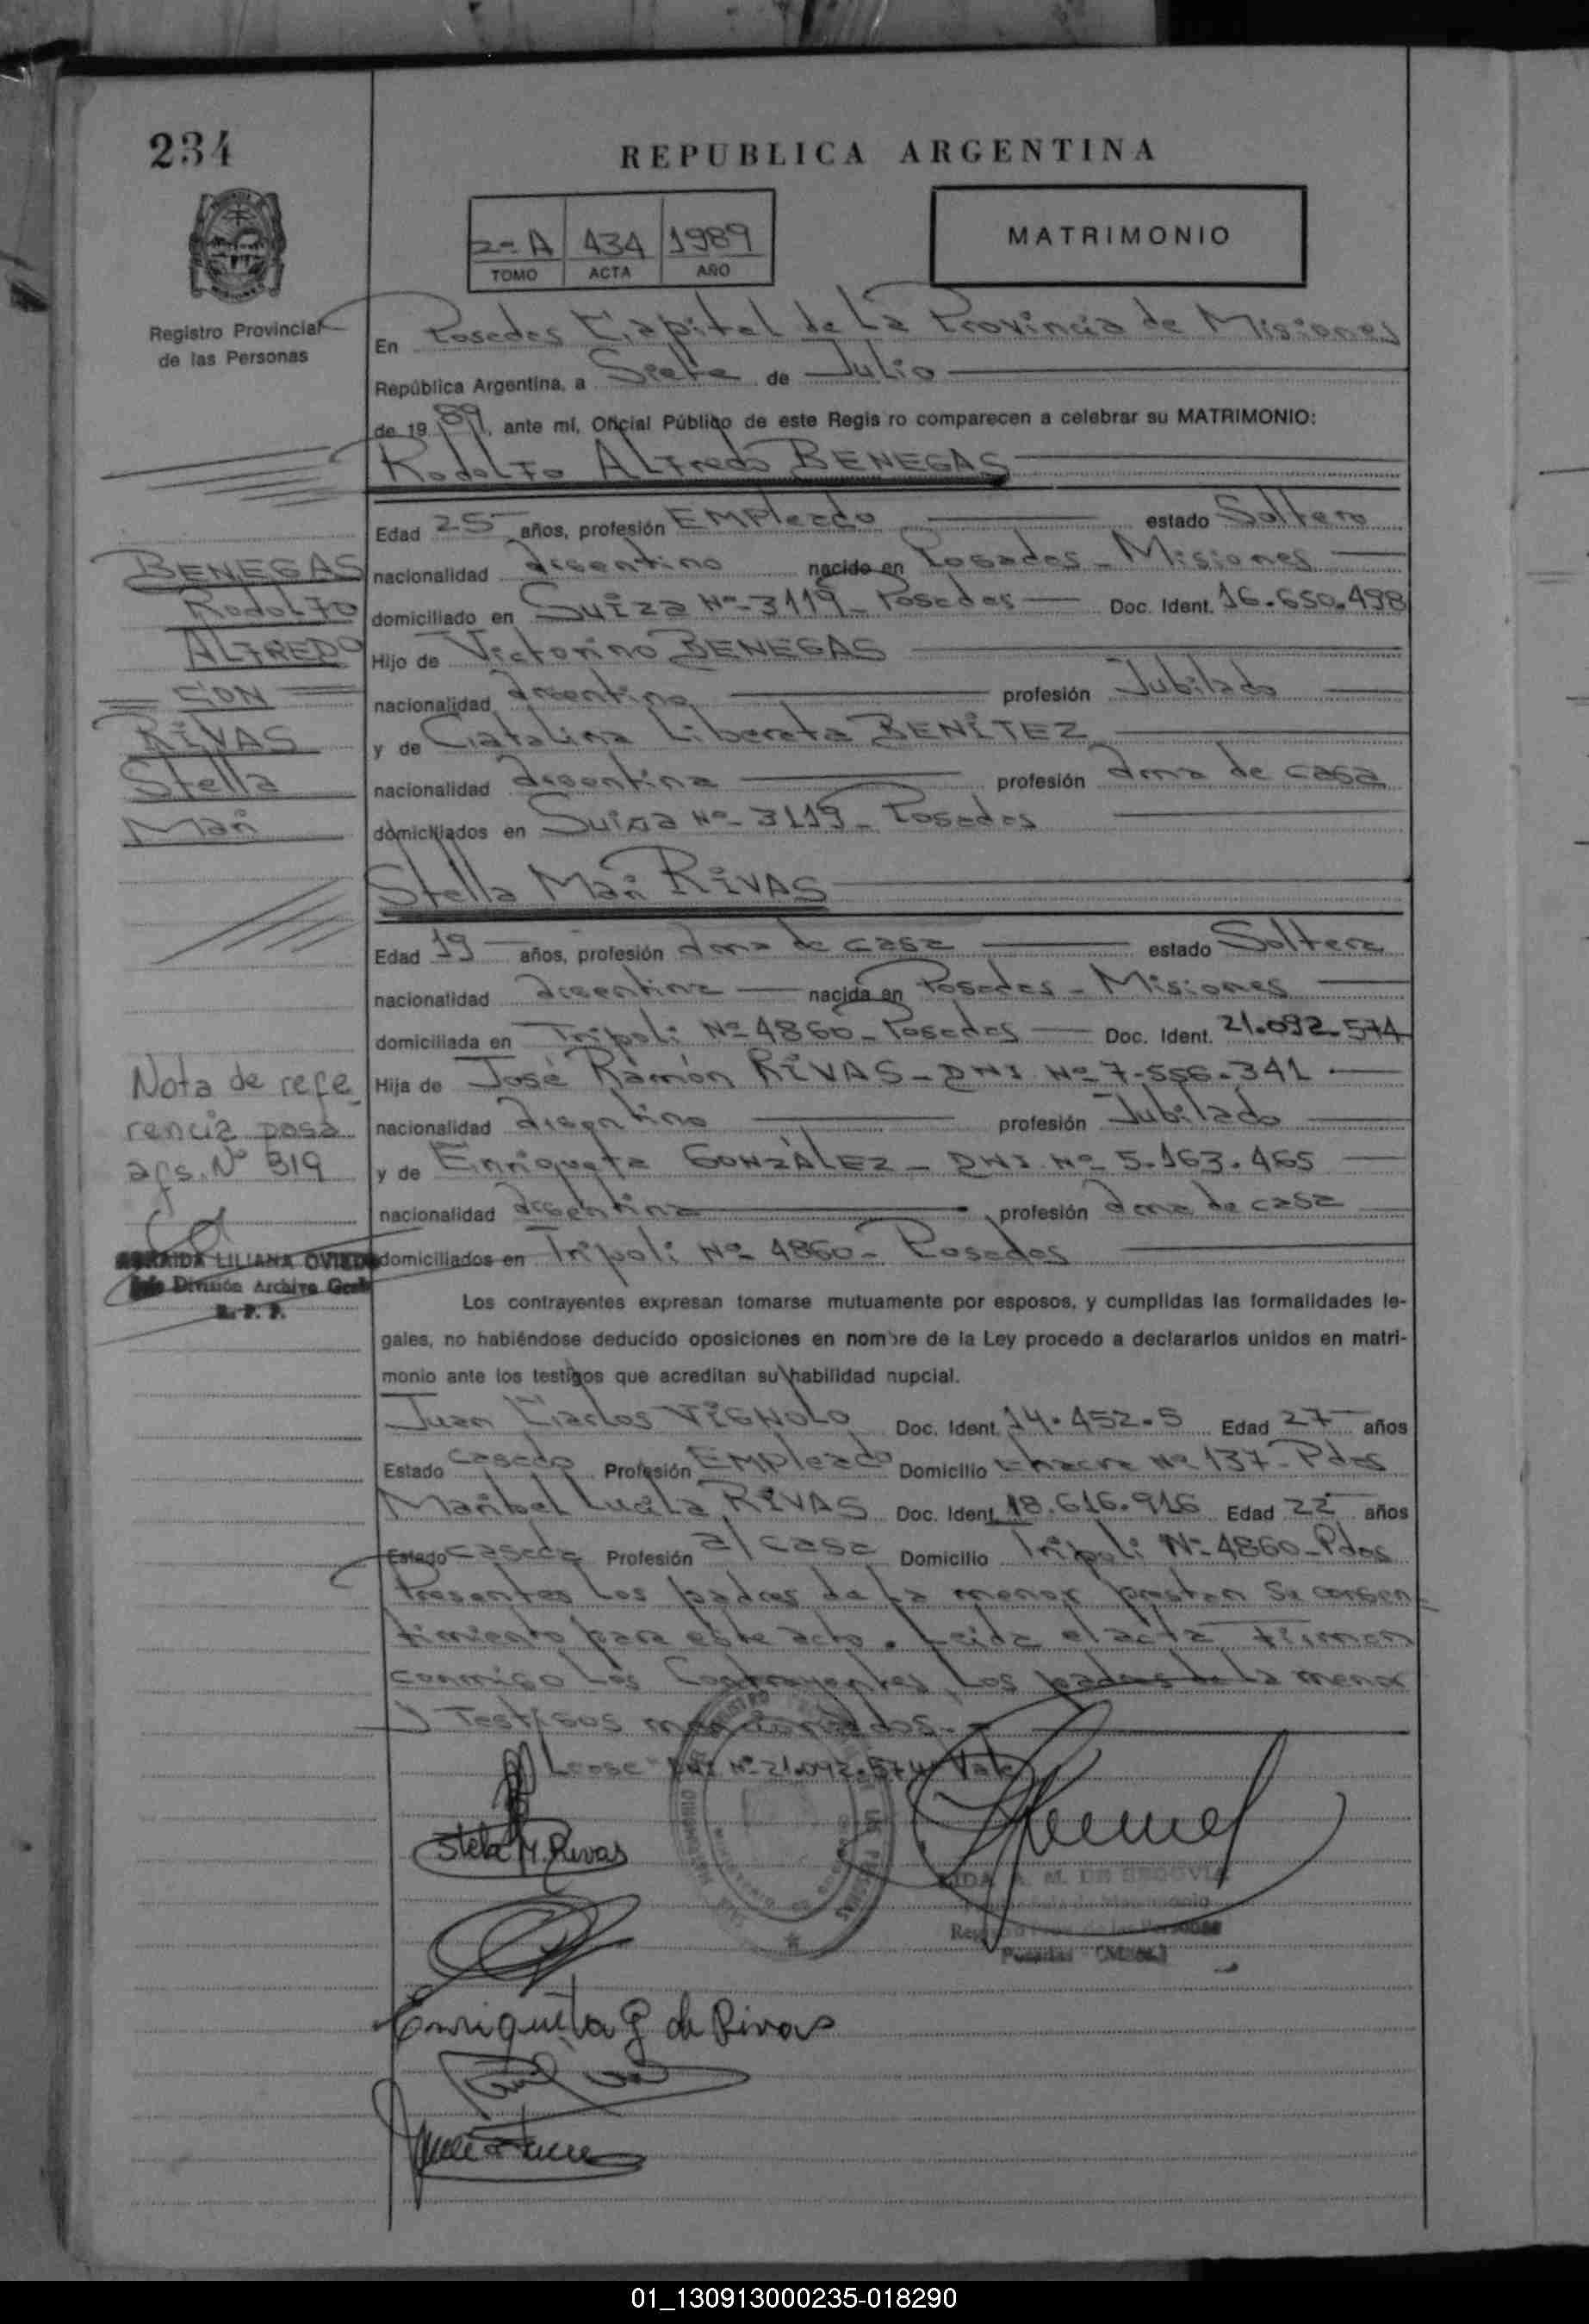 234
REPUBLICA ARGENTINA
2º A 434 1989
TOMO ACTA AÑO
MATRIMONIO
Registro Provincial
de las Personas
En Posadas Capital de La Provincia de Misiones
República Argentina, a Siete de Julio
de 1989, ante mí, Oficial Público de este Regis ro comparecen a celebrar su MATRIMONIO:
Rodolfo Alfredo BENEGAS
Edad 25 años, profesión Empleado estado Soltero
nacionalidad argentino nacido en Posadas - Misiones
domiciliado en Suiza Nº 3119 - Posadas Doc. Ident. 16.650.498
Hijo de Victorino BENEGAS
nacionalidad argentino profesión Jubilado
y de Catalina Liberata BENÍTEZ
nacionalidad argentina profesión ama de casa
domiciliados en Suiza Nº 3119 - Posadas
BENEGAS
Rodolfo
ALFREDO
CON
RIVAS
Stella
Mari
Stella Mari RIVAS
Edad 19 años, profesión ama de casa estado Soltera
nacionalidad argentina nacida en Posadas - Misiones
domiciliada en Tripoli Nº 4860 - Posadas Doc. Ident. 21.092.574
Hija de José Ramón RIVAS - DNI Nº 7.556.341
nacionalidad argentino profesión Jubilado
y de Enriqueta GONZÁLEZ - DNI Nº 5.163.465
nacionalidad argentina profesión ama de casa
domiciliados en Tripoli Nº 4860 - Posadas
Nota de refe
rencia pasa
a fs. Nº 319
LILIANA OVIEDO
Jefe División Archivo Gral
R. P. P.
Los contrayentes expresan tomarse mutuamente por esposos, y cumplidas las formalidades le-
gales, no habiéndose deducido oposiciones en nombre de la Ley procedo a declararlos unidos en matri-
monio ante los testigos que acreditan su habilidad nupcial.
Juan Carlos VIGNOLO Doc. Ident. 14.452.5 Edad 27 años
Estado casado Profesión Empleado Domicilio Chacra Nº 137 - Pdas
Maribel Lucila RIVAS Doc. Ident. 18.616.916 Edad 22 años
Estado casada Profesión a/ casa Domicilio Tripoli Nº 4860 - Pdas
Presentes Los padres de La menor prestan Su consen-
timiento para este acto. Leida el acta Firman
conmigo Los Contrayentes, Los padres de La menor
y Testigos mencionados.-
Lease "DNI Nº 21.092.574" Vale
Stela M. Rivas
A. M. DE SEGOVIA
Registro Prov. de las Personas
Posadas
Enriqueta G de Rivas